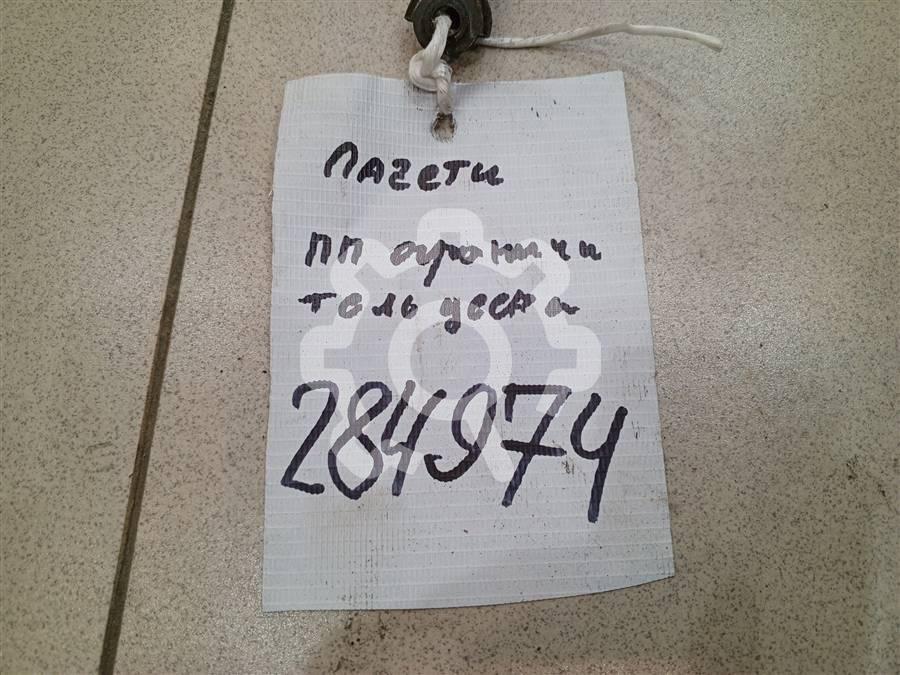 Лачети
ПП ограничи
тель двери
284974